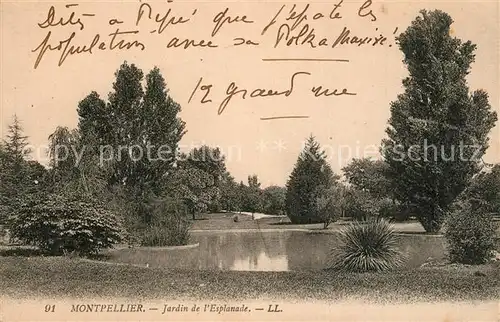 Dites à Pépé que j'épate les
populations avec sa Polka Maxixe!
12 grand rue
91 MONTPELLIER. — Jardin de l'Esplanade. — LL.